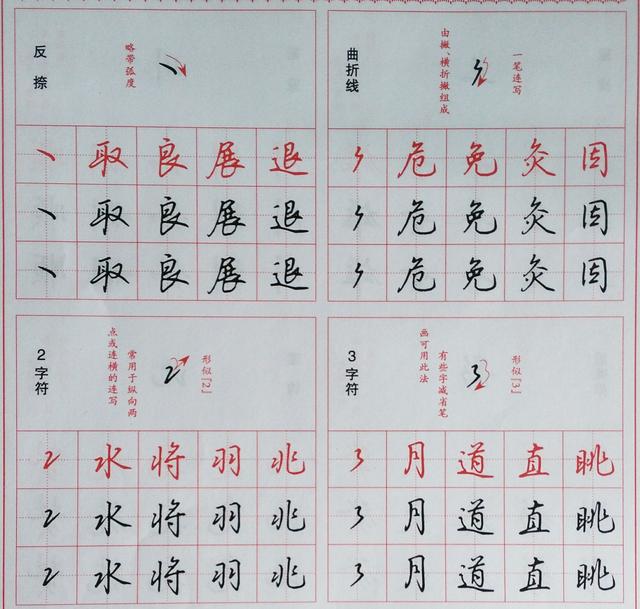 反捺
略带弧度
取 良 展 退
取 良 展 退
取 良 展 退
曲折线
由撇、横折撇组成
一笔连写
危 免 灸 因
危 免 灸 因
危 免 灸 因
2字符
常用于纵向两
点或连横的连写
2
形似『2』
2 水 将 羽 兆
2 水 将 羽 兆
2 水 将 羽 兆
3字符
有些字减省笔
画可用此法
3
形似『3』
3 月 道 直 眺
3 月 道 直 眺
3 月 道 直 眺